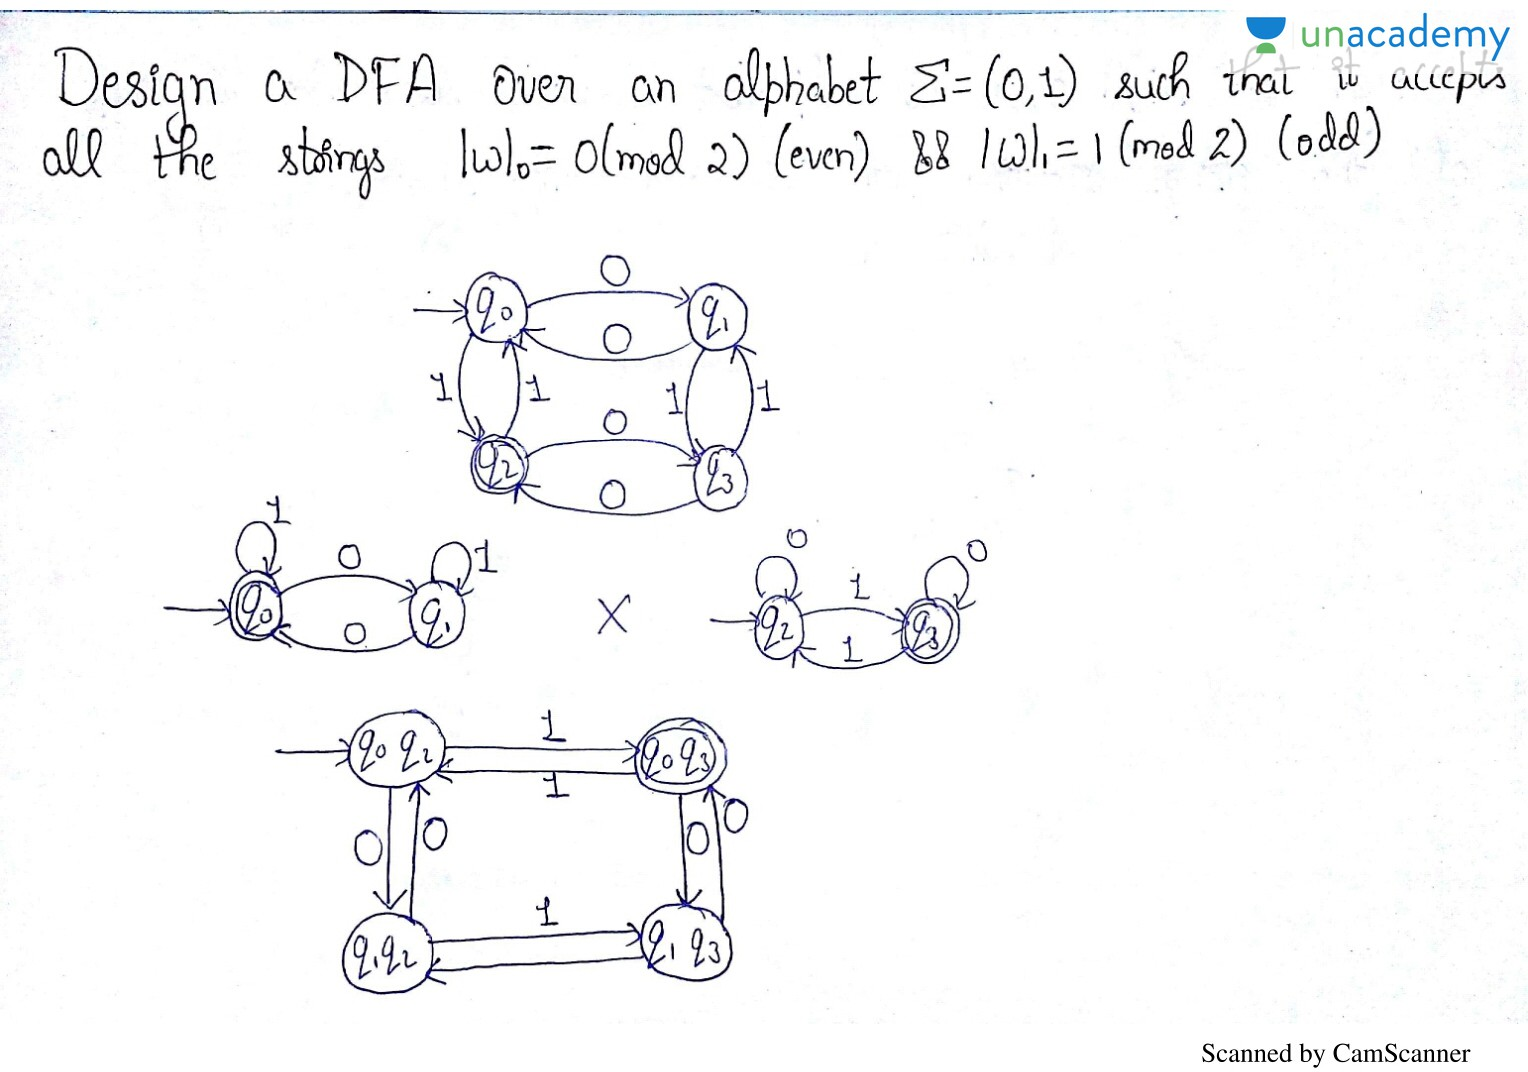 unacademy
Design a DFA over an alphabet Σ=(0,1) such that it accepts
all the strings |w|₀= 0(mod 2) (even) && |w|₁= 1 (mod 2) (odd)
0
q₀ q₁
0
1 1 1 1
0
q₂ q₃
0
1 0 1 0 1 0
q₀ q₁ X q₂ q₃
0 1
1
q₀ q₂ q₀ q₃
1
0 0 0 0
1
q₁ q₂ q₁ q₃
Scanned by CamScanner